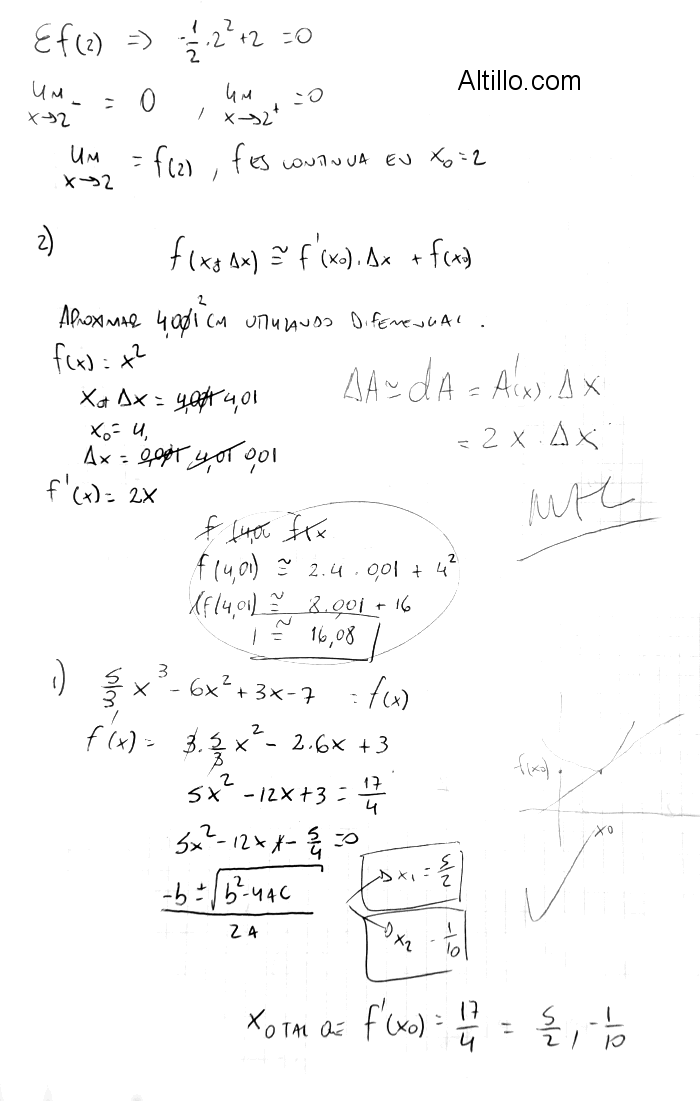 Ɛf(2) => -1/2.2²+2 =0
Altillo.com
LIM x→2⁻ = 0 , LIM x→2⁺ =0
LIM x→2 = f(2) , f ES CONTINUA EN x₀=2
2)
f(x₀+Δx) ≅ f'(x₀).Δx + f(x₀)
APROXIMAR 4,01² CM UTILIZANDO DIFERENCIAL.
f(x) = x²
x₀+Δx = 4,001 4,01
x₀= 4,
Δx = 0,001 4,01 0,01
f'(x)= 2x
ΔA≃dA = A'(x).Δx
= 2x.Δx
f(4,01) ≅ 2.4.0,01 + 4²
f(4,01) ≅ 8.0,01 + 16
≅ 16,08
1) 5/3 x³ - 6x² + 3x - 7 = f(x)
f'(x) = 3.5/3 x² - 2.6x + 3
5x² - 12x + 3 = 17/4
5x² - 12x - 5/4 = 0
-b ± √b²-4AC / 2A
x₁ = 5/2
x₂ - 1/10
f(x₀)
x₀
x₀ TAL QUE f'(x₀) = 17/4 = 5/2 , -1/10